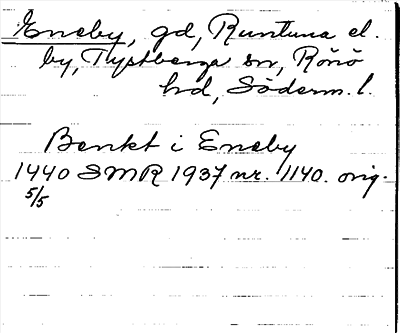 Eneby, gd, Runtuna el.
by, Tystberga sn, Rönö
hd, Söderm. l.
Benkt i Eneby
1440 SMR 1937 nr. 1140. orig.
5/5